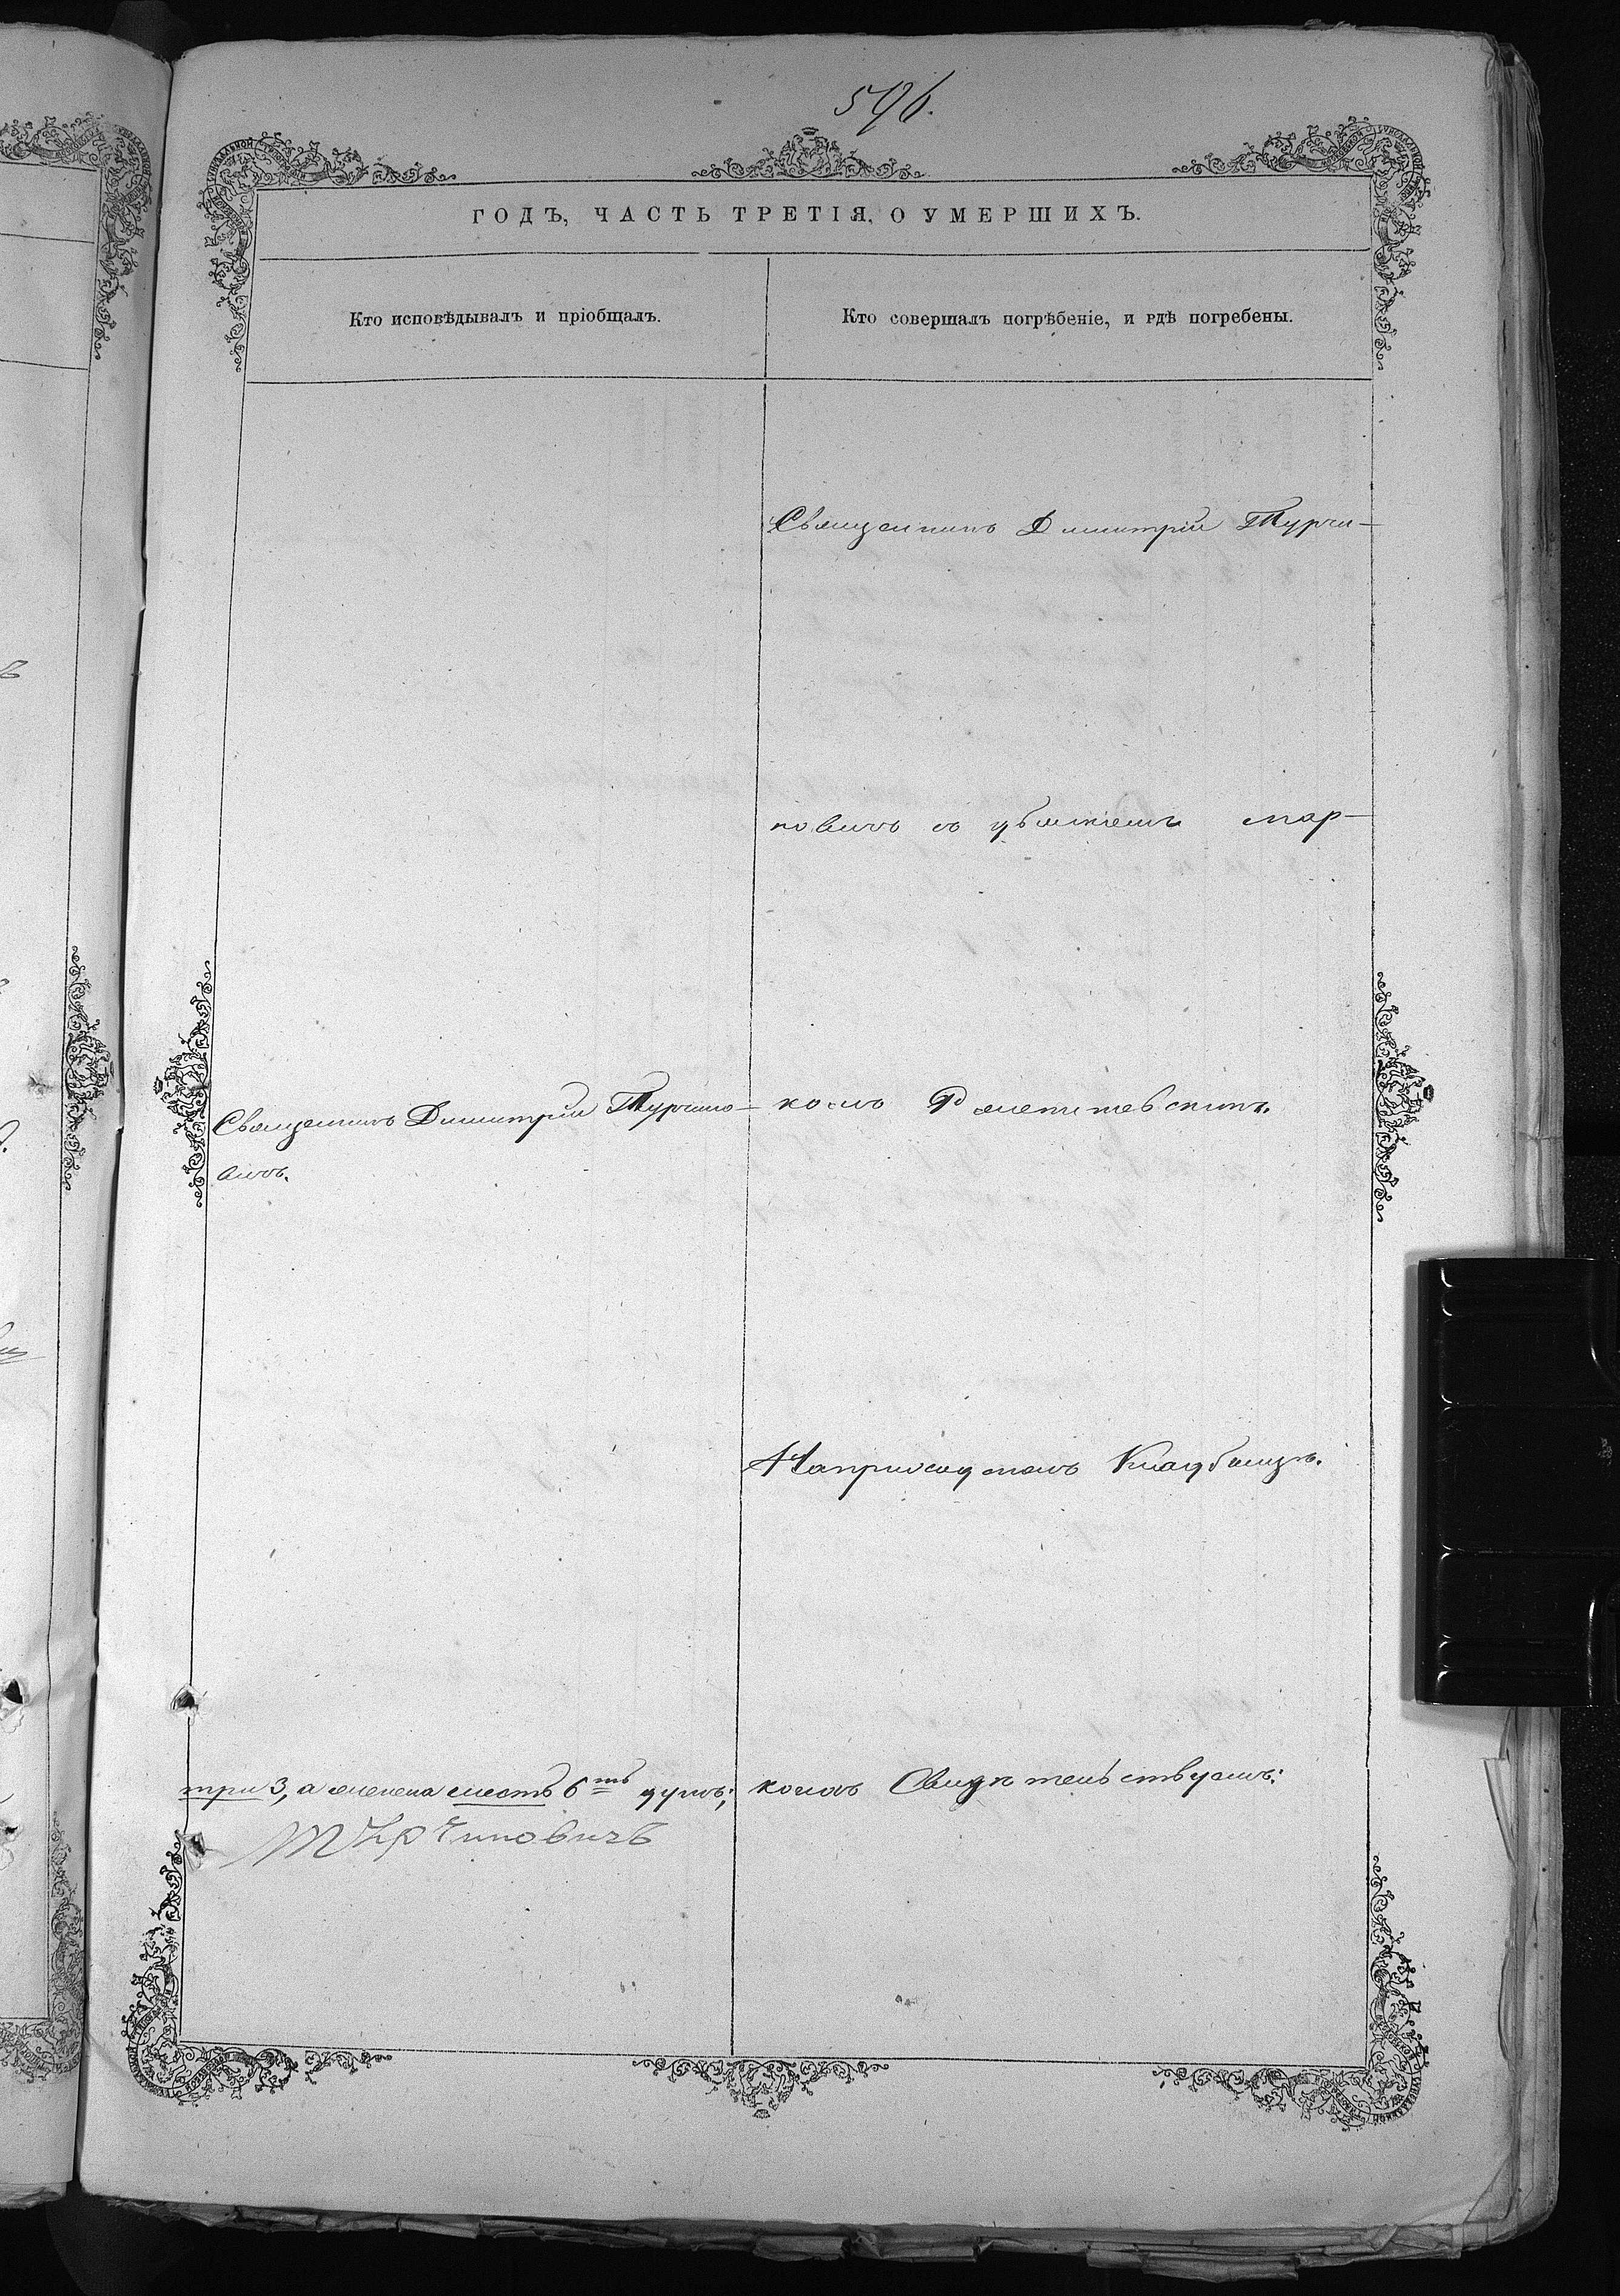 596.
ГОДЪ, ЧАСТЬ ТРЕТІЯ, О УМЕРШИХЪ.
Кто исповѣдывалъ и пріобщалъ.
Кто совершалъ погрѣбеніе, и гдѣ погребены.
Священникъ Димитрій Турчи-
новичъ съ
Священникъ Димитрій Турчино-
вичъ.
комъ
На приходскомъ Кладбищѣ.
три 3, а женска шесть 6ть душъ;
комъ Свидѣтельствуемъ:
Турчиновичъ